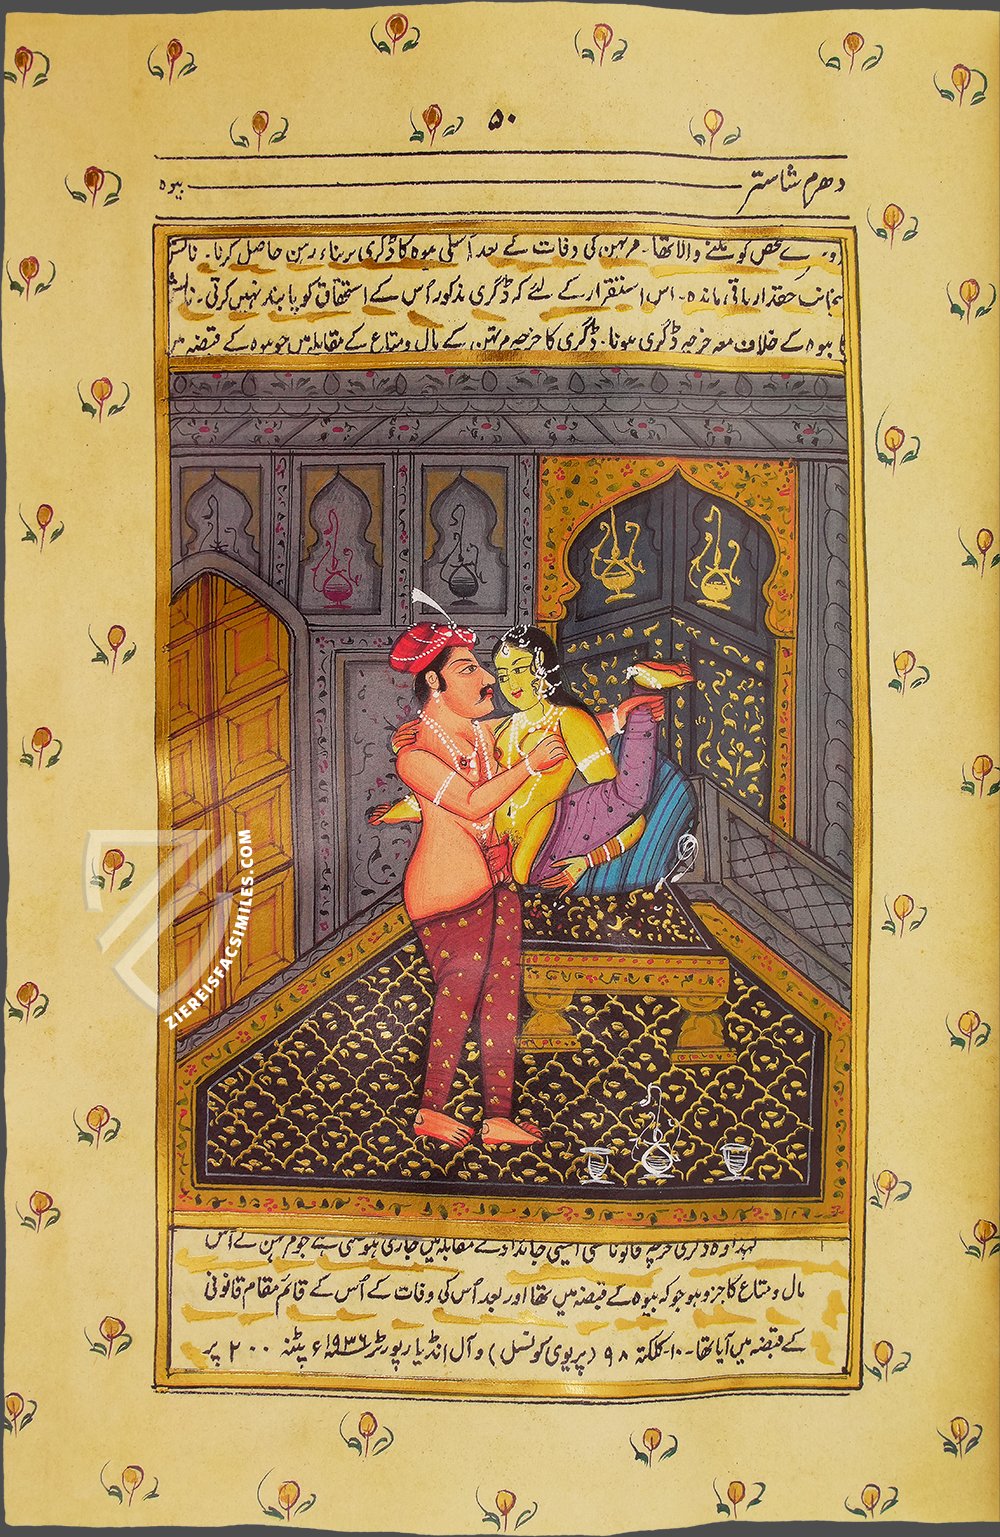 ۵۰
دھرم شاستر
بیوہ
سے محض کو ملنے والا تھا۔ مرتہن کی وفات کے بعد اُسکی بیوہ کا ڈگری بر بناء رہن حاصل کرنا۔
حقدار باقی ماندہ۔ اس استقرار کے لئے کہ ڈگری مذکور اُس کے استحقاق کو پابند نہیں کرتی۔
بیوہ کے خلاف معہ خرچہ ڈگری ہونا۔ ڈگری کا خرچہ مرتہن کے مال و متاع کے مقابلہ میں جو بیوہ کے قبضہ میں
ZIEREISFACSIMILES.COM
لہذا وہ ڈگری خرچہ قانوناً کسی ایسی جائداد کے مقابلہ میں جاری ہو سکتی ہے جو مرتہن کے اُس
مال و متاع کا جزو ہو جو کہ بیوہ کے قبضہ میں تھا اور بعد اُس کی وفات کے اُس کے قائم مقام قانونی
کے قبضہ میں آیا تھا۔ ۱۰۔ کلکتہ ۹۸ (پریوی کونسل) و آل انڈیا رپورٹر ۱۹۳۶ء پٹنہ ۲۰۰ پر